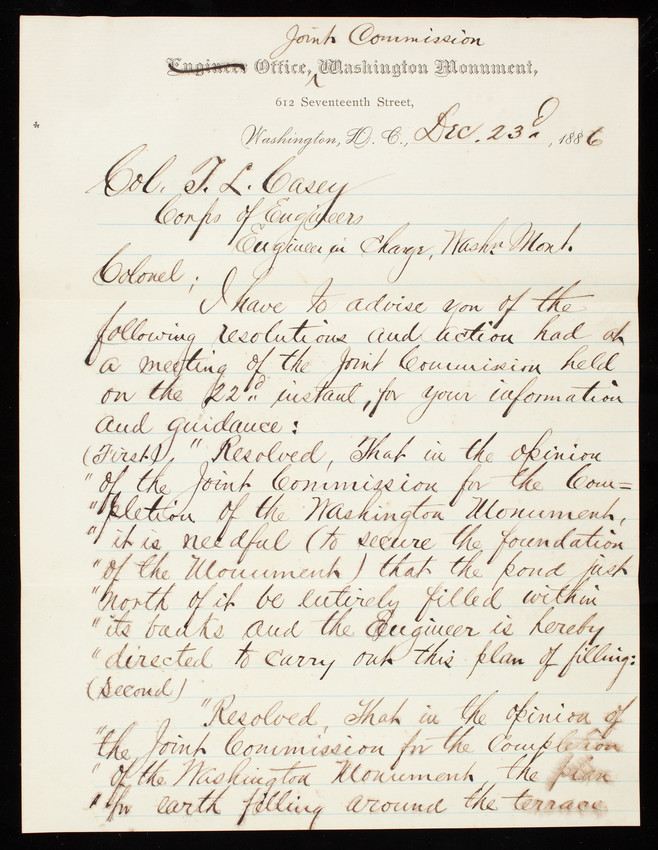 Joint Commission
Engineer Office, ^ Washington Monument,
612 Seventeenth Street,
*
Washington, D. C., Dec. 23d, 1886
Col. T. L. Casey
Corps of Engineers
Engineer in Charge, Washn Mont.
Colonel;
I have to advise you of the
following resolutions and action had at
a meeting of the Joint Commission held
on the 22d instant, for your information
and guidance:
(First), "Resolved, That in the opinion
"of the Joint Commission for the Com=
"pletion of the Washington Monument,
"it is needful (to secure the foundation
"of the Monument) that the pond just
"North of it be entirely filled within
"its banks and the Engineer is hereby
"directed to carry out this plan of filling:
(Second)
"Resolved, That in the opinion of
"the Joint Commission for the Completion
"of the Washington Monument, the plan
"for earth filling around the terrace